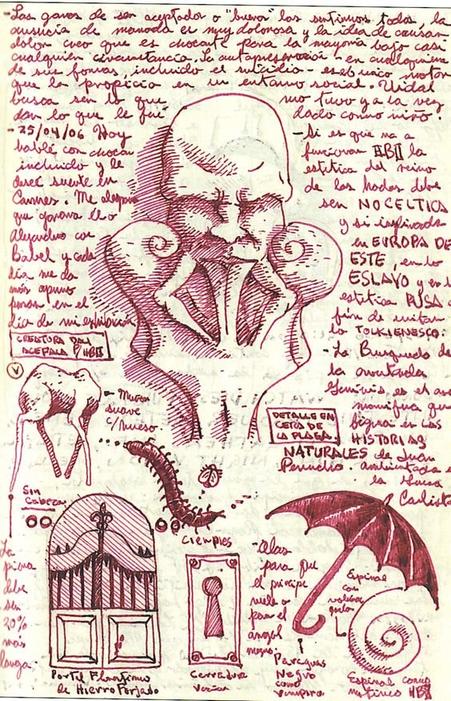 -Las ganas de ser aceptados o "buenos" las sentimos todos, la
ausencia de manada es muy dolorosa y la idea de causar
dolor creo que es chocante para la mayoría bajo casi
cualquier circunstancia. La autopreservación en cualquiera
de sus formas, incluido el suicidio es el único motor
que la propicia en su entorno social. Unidad
busca ser lo que no tuvo y a la vez
dar lo que le fue dado como niño.
- 25/04/06 Hoy
hablé con chocan
incluido y le
deseé suerte en
Cannes. Me alegra
que ganara ello
Alejandro con
Babel y cada
día me da
más
penas en el
día de mi exhibición
CREATURA DALI
ACEFALA P/HBII
- Si es que va a
funcionar HBII la
estética del reino
de las hadas debe
ser NO CELTICA
y si inspirada
en EUROPA DE
ESTE, en lo
ESLAVO y en la
estética RUSA a
fin de evitar
lo TOLKIENESCO.
- La Busqueda de
la avutarda
Geminis es el ave
magnifica que
figura en las
HISTORIAS
NATURALES de Juan
Perucho ambientada en
la Guerra
Carlista
DETALLE EN
CETRO DE
LA PLAGA
V
- Muñon
suave
c/hueso
Sin
Cabeza
La
pierna
debe
ser
20%
más
larga
Ciempies
-Alas
para que
el principe
vuele o
para el
ángel
negro.
Paraguas
Negro
como
vampiro
Espinal
con
Portil
de Hierro Forjado
Cerradura
Espinal como
HBII